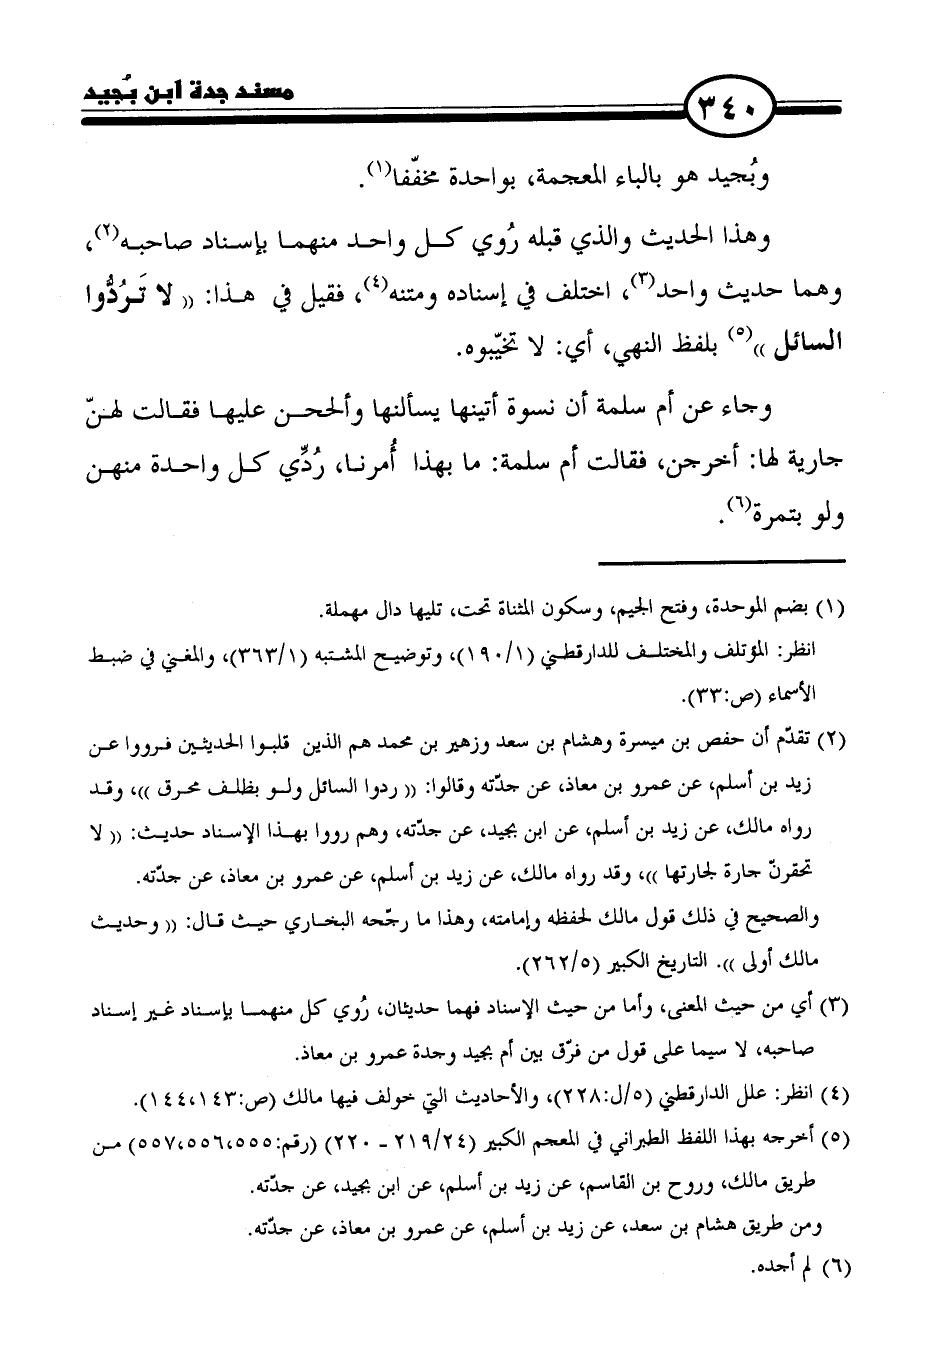 مسند جدة ابن بُجيد
٣٤٠
وبُجيد هو بالباء المعجمة، بواحدة مخفّفا(١).
وهذا الحديث والذي قبله رُوي كل واحد منهما بإسناد صاحبه(٢)،
وهما حديث واحد(٣)، اختلف في إسناده ومتنه(٤)، فقيل في هذا: (( لا تَرُدُّوا
السائل ))(٥) بلفظ النهي، أي: لا تخيّبوه.
وجاء عن أم سلمة أن نسوة أتينها يسألنها وألححن عليها فقالت لهنّ
جارية لها: أخرجن، فقالت أم سلمة: ما بهذا أُمرنا، رُدِّي كل واحدة منهن
ولو بتمرة(٦).
(١) بضم الموحدة، وفتح الجيم، وسكون المثناة تحت، تليها دال مهملة.
انظر: المؤتلف والمختلف للدارقطني (١٩٠/١)، وتوضيح المشتبه (٣٦٣/١)، والمغني في ضبط
الأسماء (ص:٣٣).
(٢) تقدّم أن حفص بن ميسرة وهشام بن سعد وزهير بن محمد هم الذين قلبوا الحديثين فرووا عن
زيد بن أسلم، عن عمرو بن معاذ، عن جدّته وقالوا: (( ردوا السائل ولو بظلف محرق ))، وقد
رواه مالك، عن زيد بن أسلم، عن ابن بجيد، عن جدّته، وهم رووا بهذا الإسناد حديث: (( لا
تحقرنّ جارة لجارتها ))، وقد رواه مالك، عن زيد بن أسلم، عن عمرو بن معاذ، عن جدّته.
والصحيح في ذلك قول مالك لحفظه وإمامته، وهذا ما رجّحه البخاري حيث قال: (( وحديث
مالك أولى )). التاريخ الكبير (٢٦٢/٥).
(٣) أي من حيث المعنى، وأما من حيث الإسناد فهما حديثان، رُوي كل منهما بإسناد غير إسناد
صاحبه، لا سيما على قول من فرّق بين أم بجيد وجدة عمرو بن معاذ.
(٤) انظر: علل الدارقطني (٥/ل:٢٢٨)، والأحاديث التي خولف فيها مالك (ص:١٤٣،١٤٤).
(٥) أخرجه بهذا اللفظ الطبراني في المعجم الكبير (٢١٩/٢٤ - ٢٢٠) (رقم:٥٥٥،٥٥٦،٥٥٧) من
طريق مالك، وروح بن القاسم، عن زيد بن أسلم، عن ابن بجيد، عن جدّته.
ومن طريق هشام بن سعد، عن زيد بن أسلم، عن عمرو بن معاذ، عن جدّته.
(٦) لم أجده.